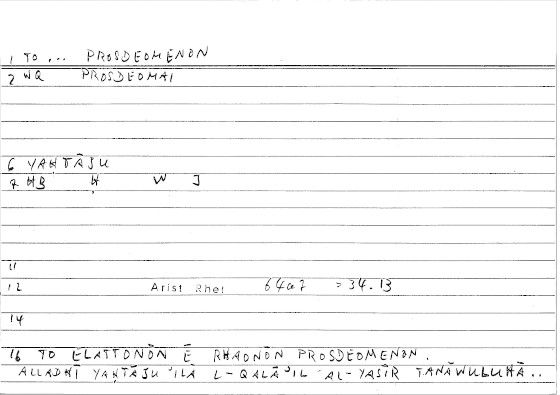 1 TO ... PROSDEOMENON
2 WQ PROSDEOMAI
6 YAḤTĀJU
7 ḤB Ḥ W J
11
12 Arist Rhet 64a7 = 34.13
14
16 TO ELATTONŌN Ē RHAONŌN PROSDEOMENON.
ALLADHĪ YAḤTĀJU 'ILĀ L-QALĀ'IL AL-YASĪR TANĀWULUHĀ..